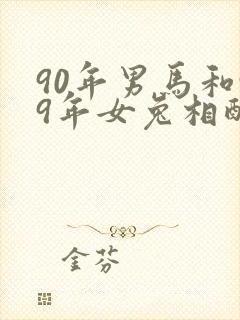 90年男馬和
9年女兔相配
金芬